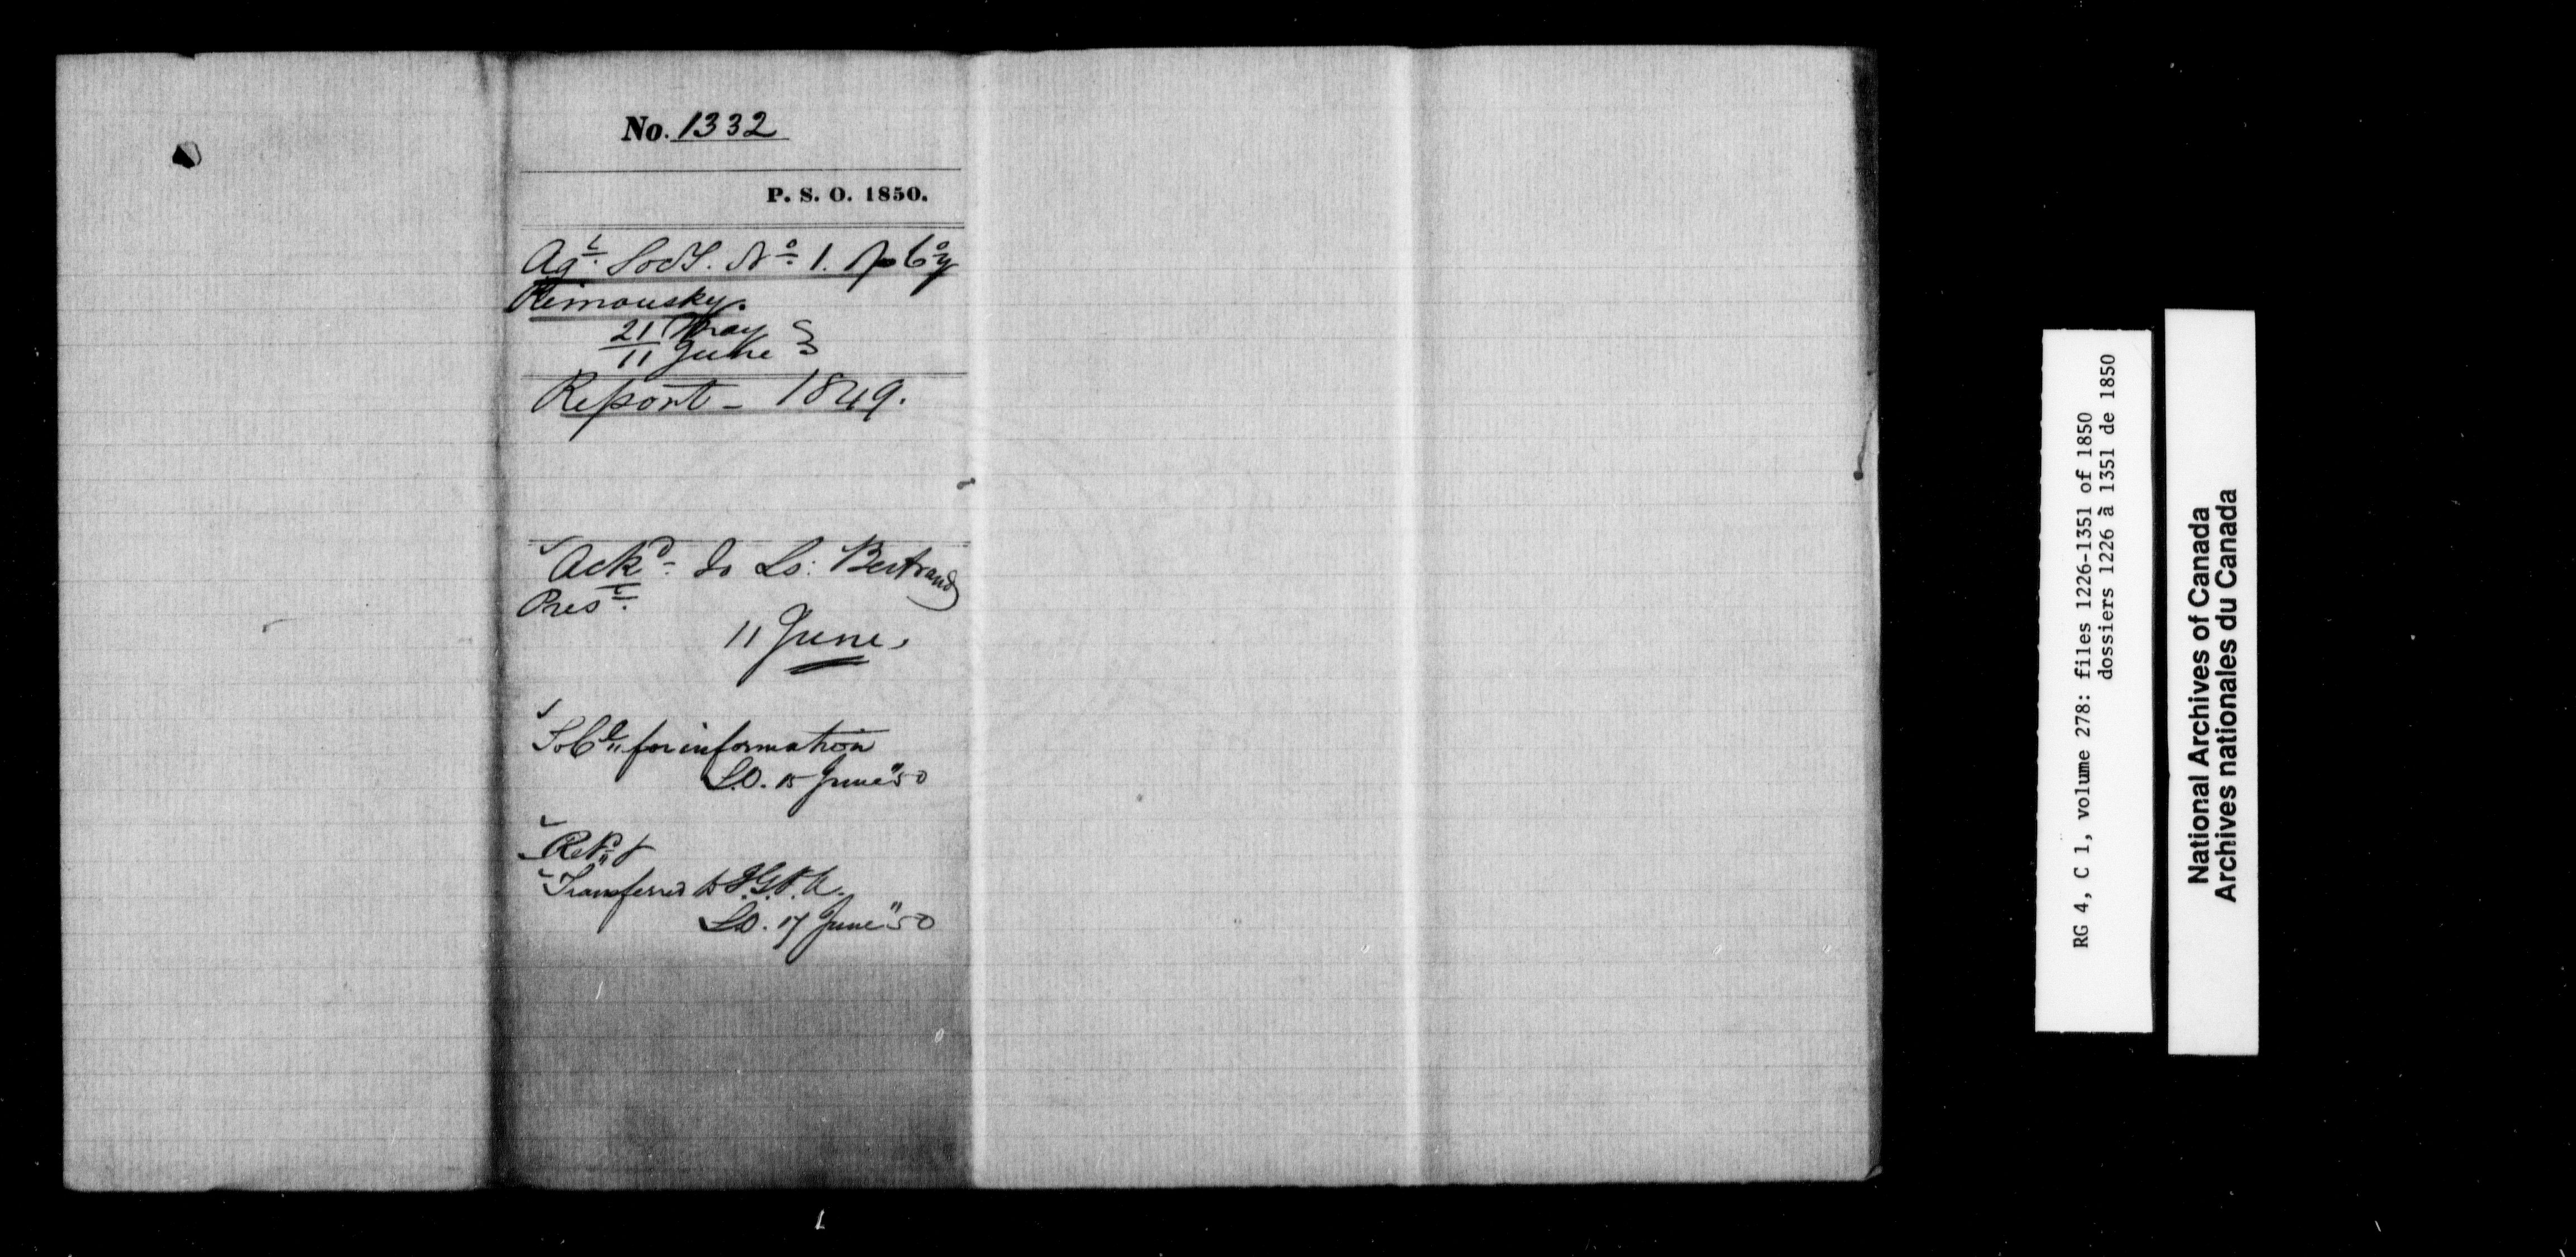 No. 1332
P. S. O. 1850.
Agl. Socy. No. 1. Coy
Rimousky.
21 May
11 June
Report - 1849.
Ackd. do Ls: Bertrand
Prest.
11 June.
for information
L.O. 15 June "50
Transferred to
L.O. 17 June "50
RG 4, C 1, volume 278: files 1226-1351 of 1850
dossiers 1226 à 1351 de 1850
National Archives of Canada
Archives nationales du Canada